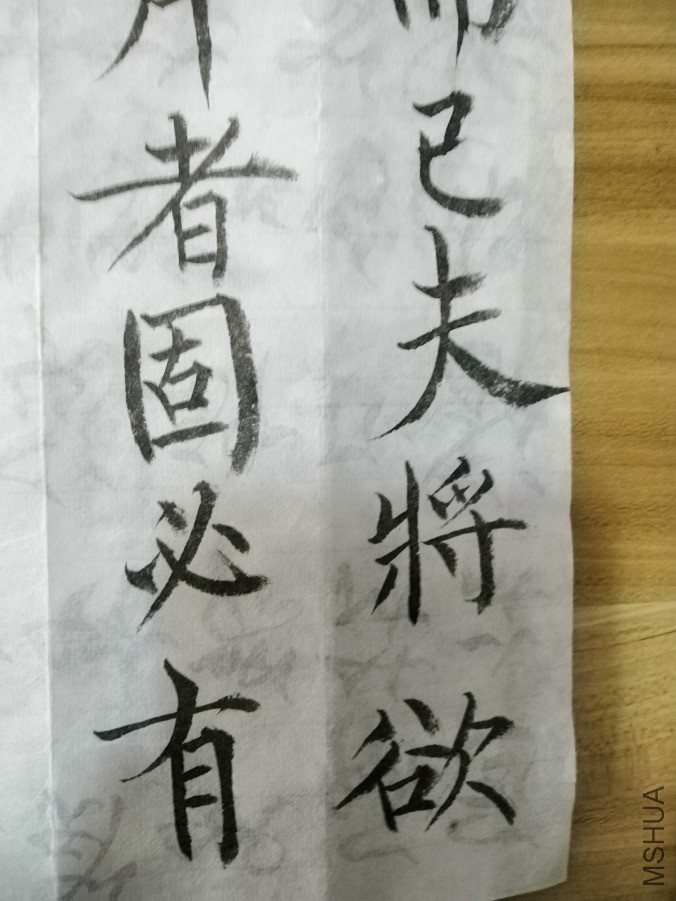 而已夫將欲
者固必有
MSHUA